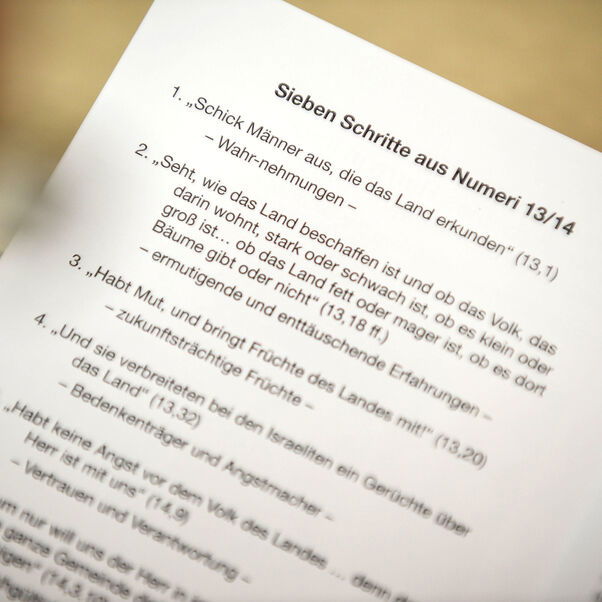 Sieben Schritte aus Numeri 13/14
1. „Schick Männer aus, die das Land erkunden“ (13,1)
– Wahr-nehmungen –
2. „Seht, wie das Land beschaffen ist und ob das Volk, das
darin wohnt, stark oder schwach ist, ob es klein oder
groß ist... ob das Land fett oder mager ist, ob es dort
Bäume gibt oder nicht“ (13,18 ff.)
– ermutigende und enttäuschende Erfahrungen –
3. „Habt Mut, und bringt Früchte des Landes mit!“ (13,20)
– zukunftsträchtige Früchte –
4. „Und sie verbreiteten bei den Israeliten ein Gerüchte über
das Land“ (13,32)
– Bedenkenträger und Angstmacher –
„Habt keine Angst vor dem Volk des Landes ... denn der
Herr ist mit uns“ (14,9)
– Vertrauen und Verantwortung –
um nur will uns der Herr in
ganze Gemeinde
(14,3.10